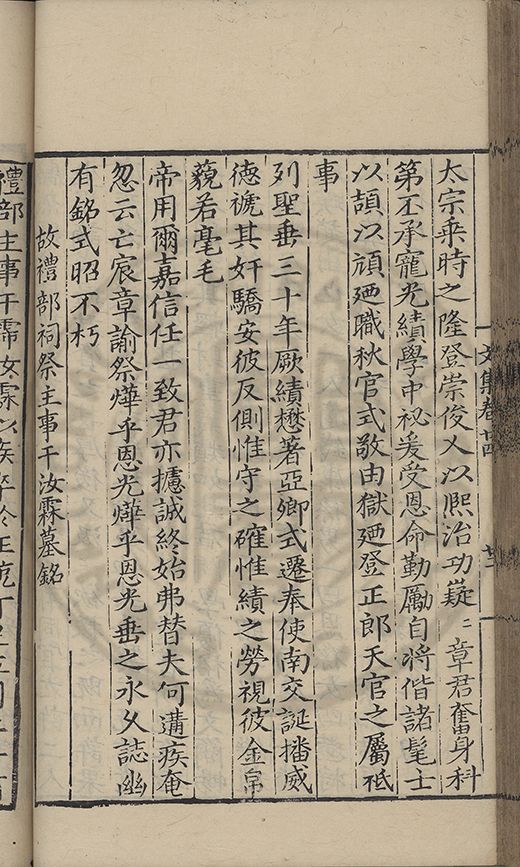 文集卷廿四
太宗乘時之隆登崇俊乂以熈治功嶷二章君奮身科
第丕承寵光績學中祕爰受恩命勤勵自將偕諸髦士
以頡以頏廼職秋官式敬由獄廼登正郎天官之屬祗
事
列聖垂三十年厥績懋著亞卿式遷奉使南交誕播威
徳褫其奸驕安彼反側惟守之確惟績之勞視彼金帛
藐若毫毛
帝用爾嘉信任一致君亦攄誠終始弗替夫何遘疾奄
忽云亡宸章諭祭燁乎恩光燁乎恩光垂之永久誌幽
有銘式昭不朽
故禮部祠祭主事干汝霖墓銘
禮部主事干霈汝霖以疾卒於